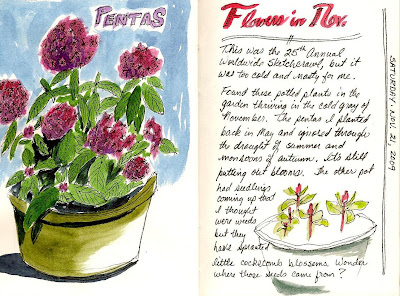 PENTAS
Flowers in Nov.
This was the 25th Annual
Worldwide Sketchcrawl, but it
was too cold and nasty for me.
Found these potted plants in the
garden thriving in the cold gray of
November. The pentas I planted
back in May and ignored through
the drought of summer and
monsoons of autumn. It's still
putting out blooms. The other pot
had seedlings
coming up that
I thought
were weeds
but they
have sprouted
little cockscomb blossoms. Wonder
where those seeds came from?
SATURDAY NOV. 21, 2009